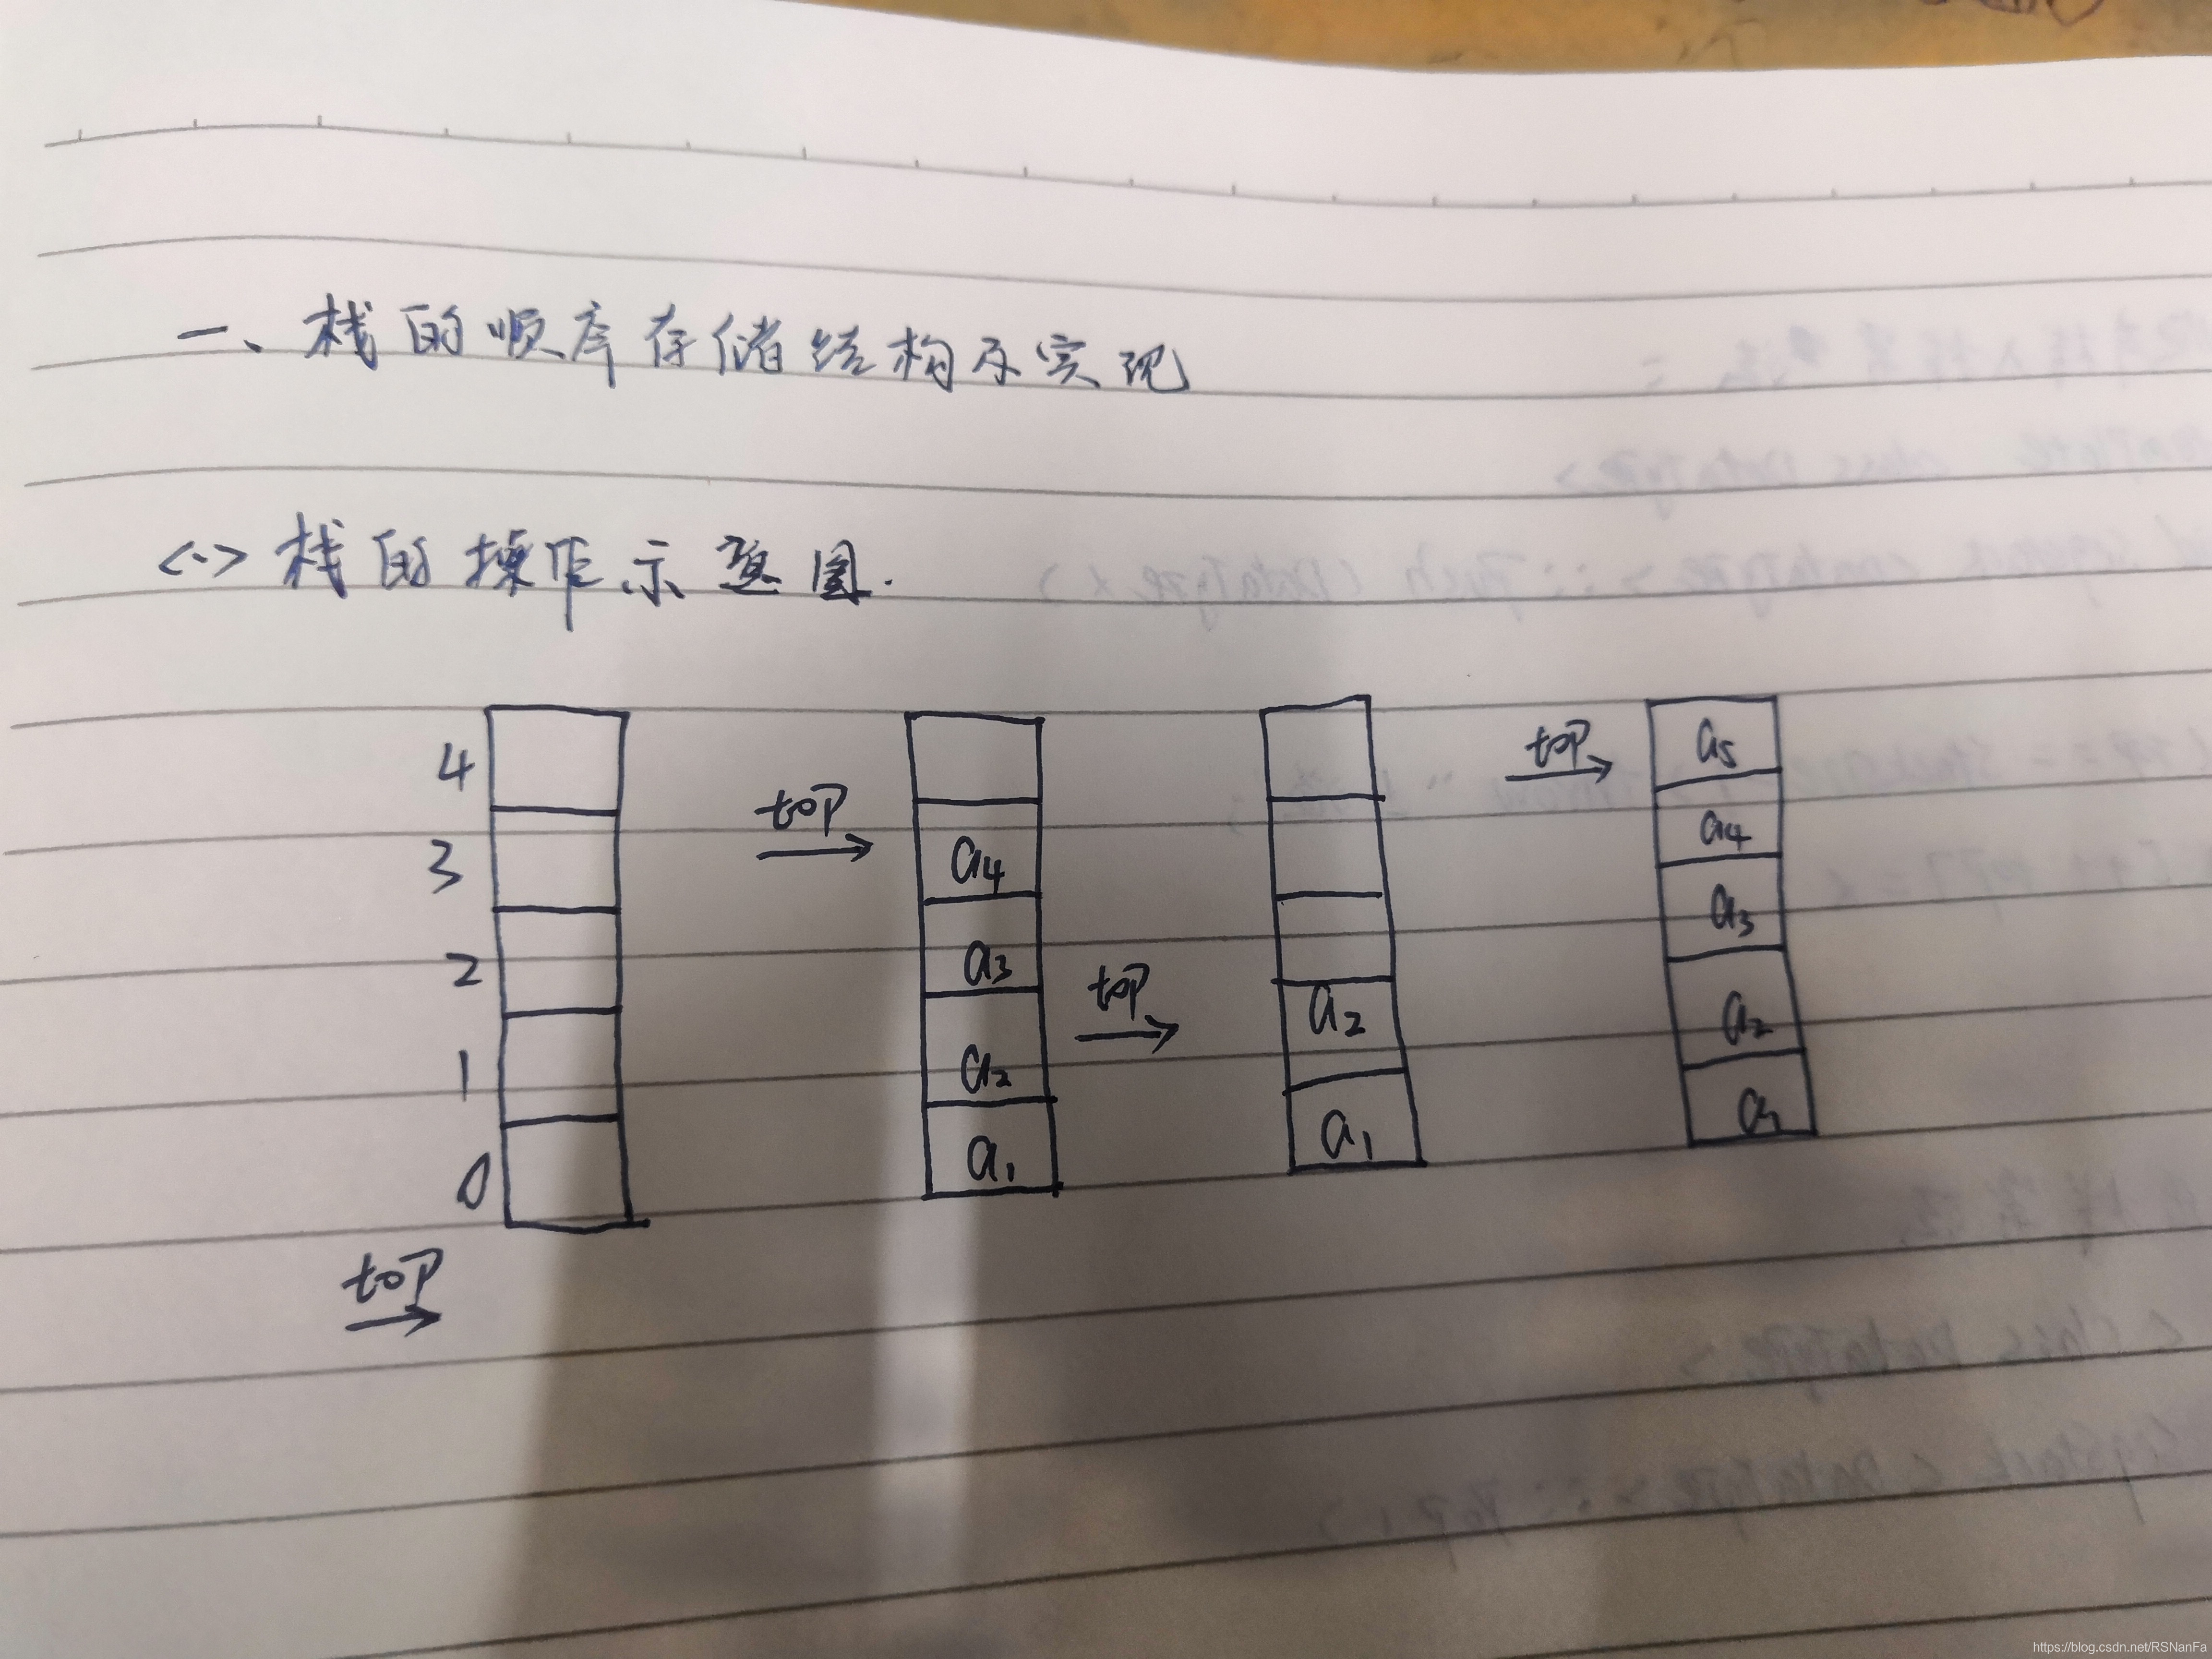 一、栈的顺序存储结构及实现
<一> 栈的操作示意图.
4
3
2
1
0
top
top
a4
a3
a2
a1
top
a2
a1
top
a5
a4
a3
a2
a1
https://blog.csdn.net/RSNanFa